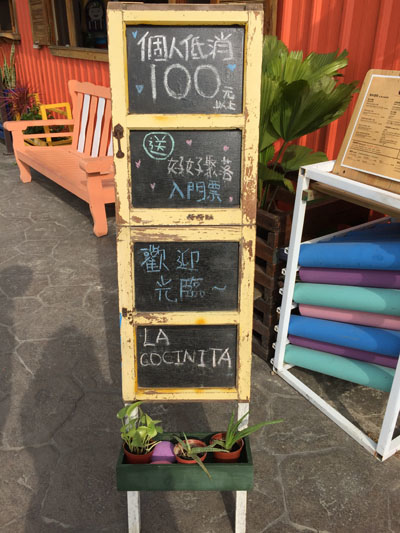 個人低消
100元
以上
送
好好聚落
入門票
歡迎
光臨~
LA
COCINITA